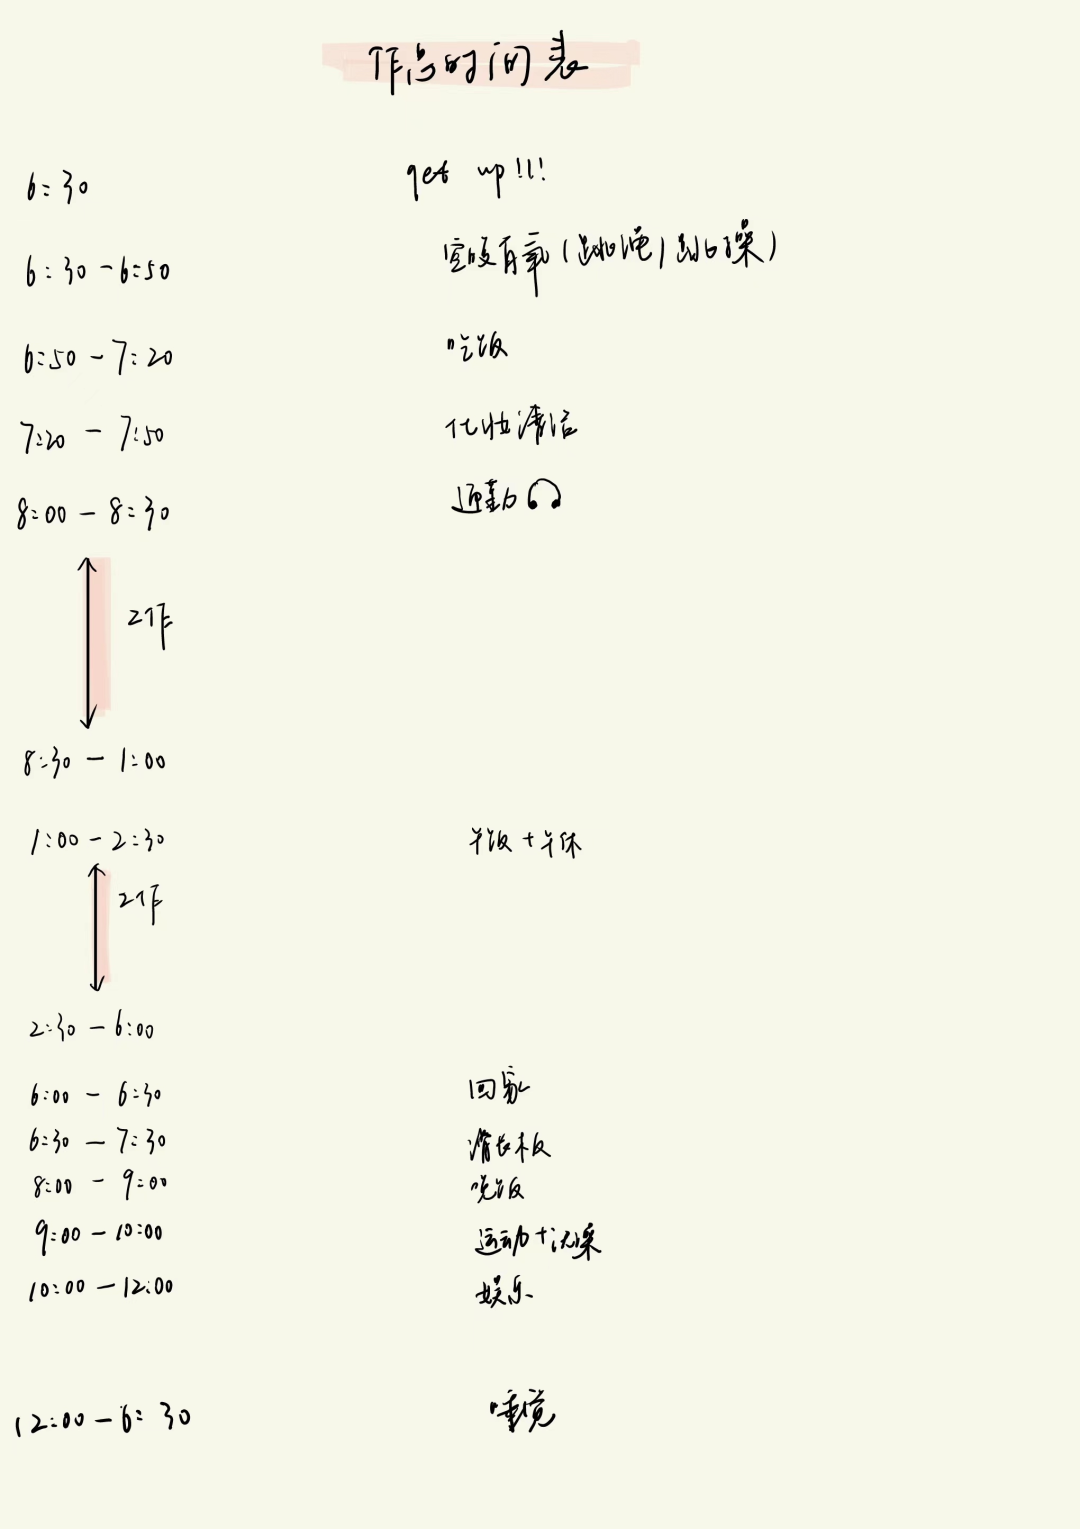 作息时间表
6:30 get up!!!
6:30-6:50 空腹有氧(跳绳/跳操)
6:50-7:20 吃饭
7:20-7:50 化妆清洁
8:00-8:30 通勤
工作
8:30-1:00
1:00-2:30 午饭+午休
工作
2:30-6:00
6:00-6:30 回家
6:30-7:30 滑长板
8:00-9:00 晚饭
9:00-10:00 运动+洗澡
10:00-12:00 娱乐
12:00-6:30 睡觉